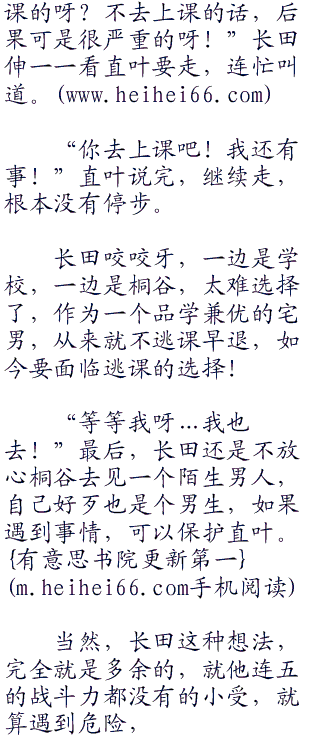 课的呀？不去上课的话，后
果可是很严重的呀！”长田
伸一一看直叶要走，连忙叫
道。(www.heihei66.com)
“你去上课吧！我还有
事！”直叶说完，继续走，
根本没有停步。
长田咬咬牙，一边是学
校，一边是桐谷，太难选择
了，作为一个品学兼优的宅
男，从来就不逃课早退，如
今要面临逃课的选择！
“等等我呀…我也
去！”最后，长田还是不放
心桐谷去见一个陌生男人，
自己好歹也是个男生，如果
遇到事情，可以保护直叶。
{有意思书院更新第一}
(m.heihei66.com手机阅读)
当然，长田这种想法，
完全就是多余的，就他连五
的战斗力都没有的小受，就
算遇到危险，